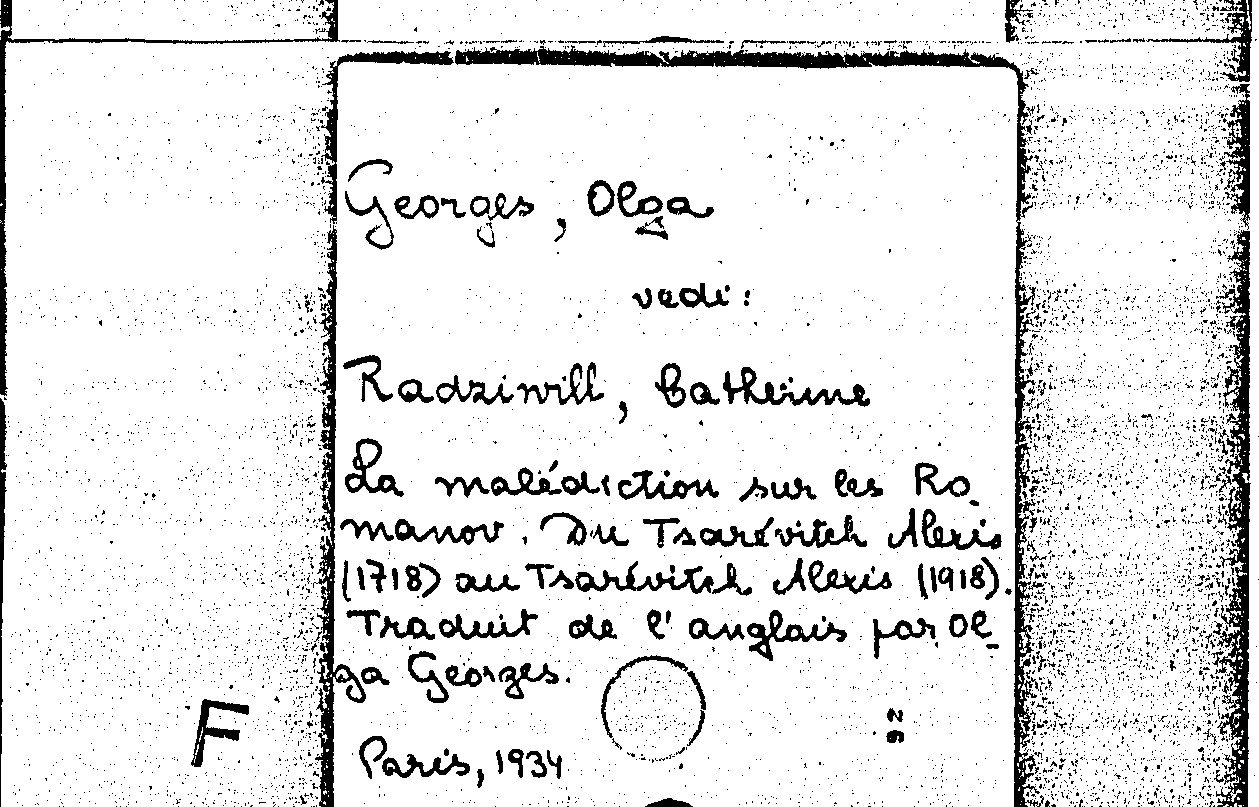 Georges, Olga
vedi:
Radziwill, Catherine
La malédiction sur les Ro_
manov. Du Tsarévitch Alexis
(1718) au Tsarévitch Alexis (1918).
Traduit de l'anglais par Ol_
ga Georges.
F
26
Paris, 1934